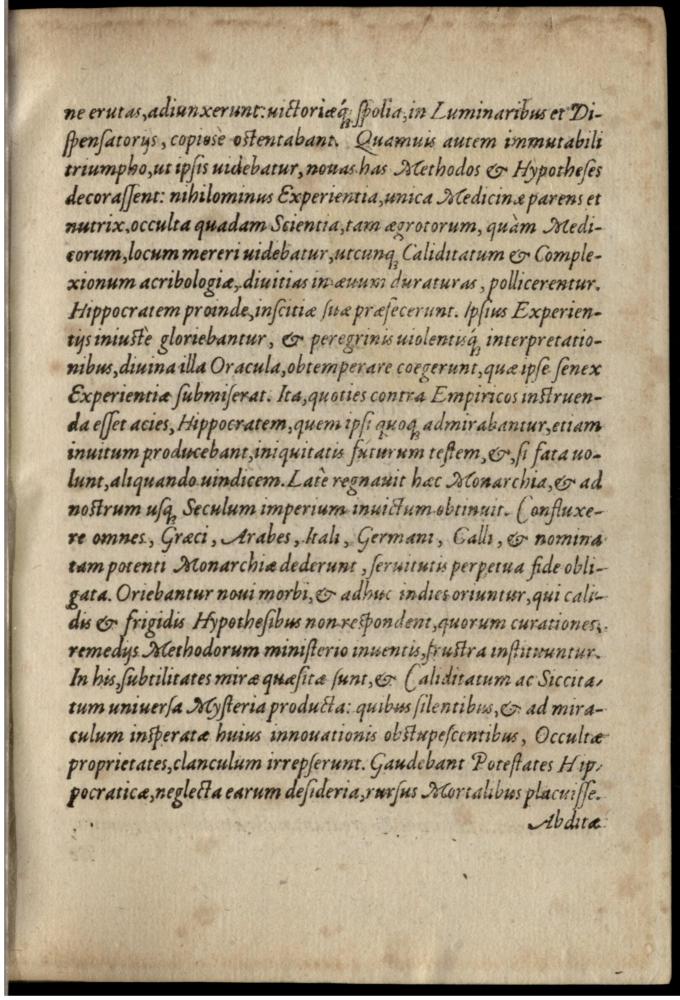 ne erutas, adiunxerunt: uictoriæq́ꝫ spolia, in Luminaribus et Di-
spensatorijs, copiosè ostentabant. Quamuis autem immutabili
triumpho, ut ipsis uidebatur, nouas has Methodos & Hypotheses
decorassent: nihilominus Experientia, unica Medicinæ parens et
nutrix, occulta quadam Scientia, tam ægrotorum, quàm Medi-
corum, locum mereri uidebatur, utcunqꝫ Caliditatum & Comple-
xionum acribologiæ, diuitias in æuum duraturas, pollicerentur.
Hippocratem proinde, inscitiæ suæ præfecerunt. Ipsius Experien-
tijs iniustè gloriebantur, & peregrinis uiolentisq́ꝫ interpretatio-
nibus, diuina illa Oracula, obtemperare coegerunt, quæ ipse senex
Experientiæ submiserat. Ita, quoties contra Empiricos instruen-
da esset acies, Hippocratem, quem ipsi quoqꝫ admirabantur, etiam
inuitum producebant, iniquitatis futurum testem, &, si fata uo-
lunt, aliquando uindicem. Latè regnauit hæc Monarchia, & ad
nostrum usqꝫ Seculum imperium inuictum obtinuit. Confluxe-
re omnes, Græci, Arabes, Itali, Germani, Galli, & nomina
tam potenti Monarchiæ dederunt, seruitutis perpetua fide obli-
gata. Oriebantur noui morbi, & adhuc indies oriuntur, qui cali-
dis & frigidis Hypothesibus non respondent, quorum curationes,
remedijs Methodorum ministerio inuentis, frustra instituuntur.
In his, subtilitates miræ quæsitæ sunt, & Caliditatum ac Siccita-
tum uniuersa Mysteria producta: quibus silentibus, & ad mira-
culum insperatæ huius innouationis obstupescentibus, Occultæ
proprietates, clanculum irrepserunt. Gaudebant Potestates Hip-
pocraticæ, neglecta earum desideria, rursus Mortalibus placuisse.
Abditæ